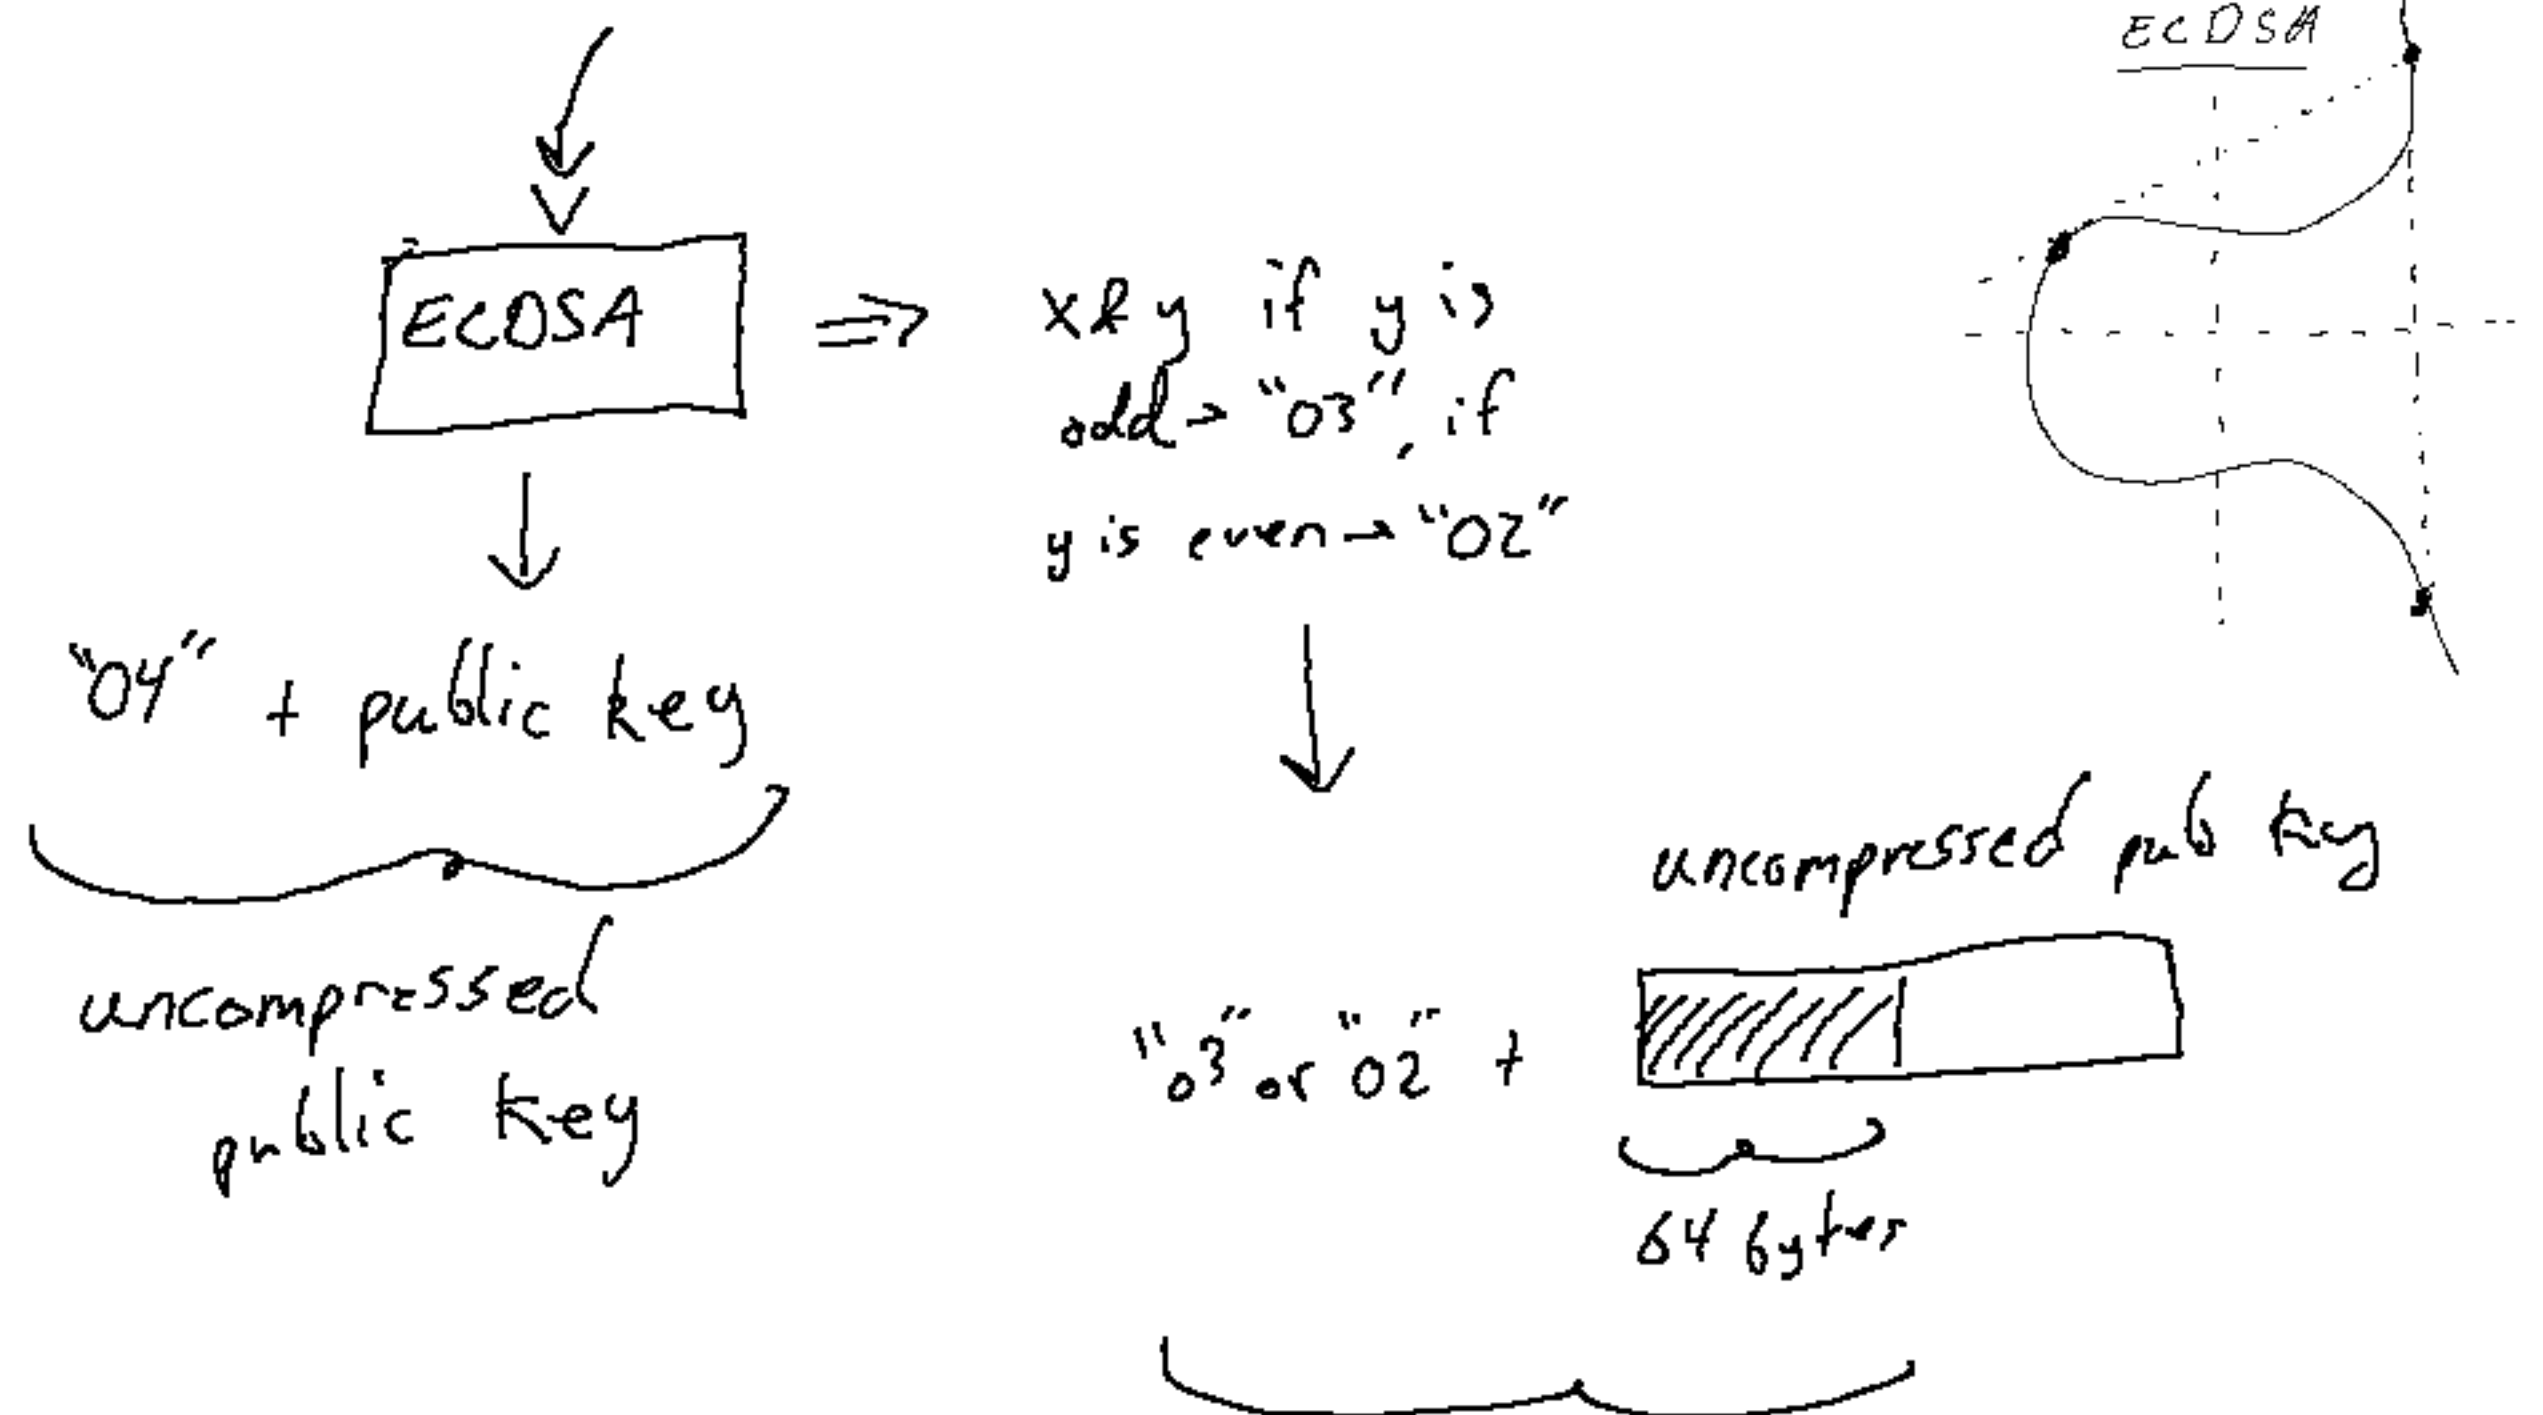 ECDSA
ECDSA
x & y if y is
odd → "03", if
y is even → "02"
"04" + public key
uncompressed
public key
uncompressed pub key
"03" or "02" +
64 bytes